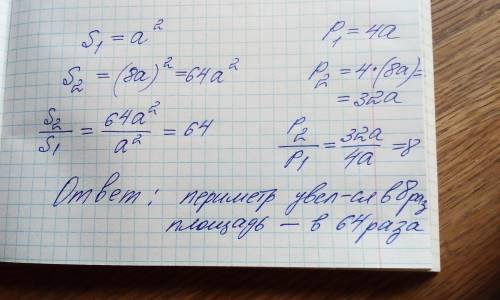 S₁ = a²
S₂ = (8a)² = 64a²
S₂/S₁ = 64a²/a² = 64
P₁ = 4a
P₂ = 4·(8a) =
= 32a
P₂/P₁ = 32a/4a = 8
Ответ: периметр увел-ся в 8 раз
площадь — в 64 раза